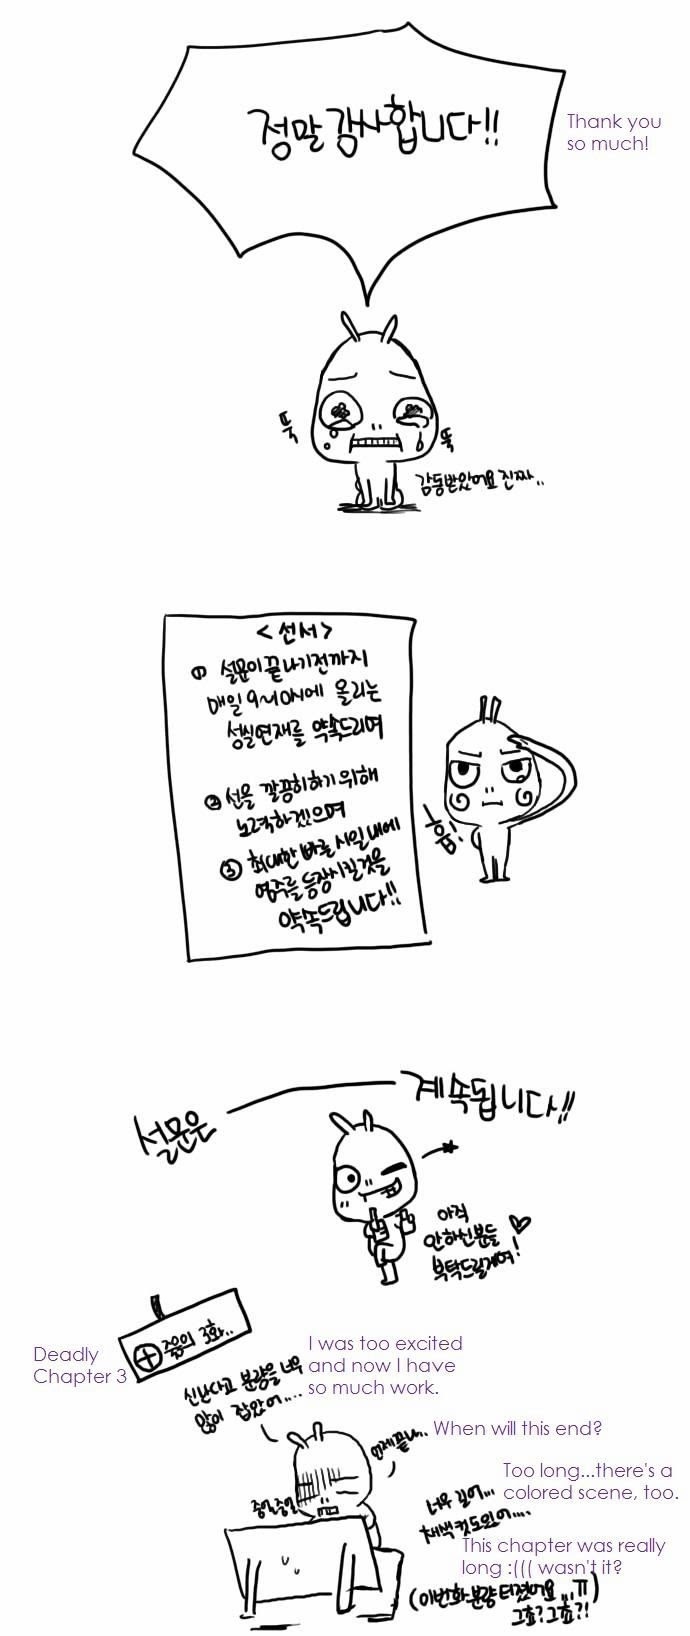 정말 감사합니다!!
Thank you
so much!
뚝
뚝
감동받았어요 진짜..
<선서>
① 설문이 끝나기전까지
매일 9~10시에 올리는
성실연재를 약속드리며
② 선을 깔끔히하기 위해
노력하겠으며
③ 최대한 빠른 시일 내에
여주를 등장시킬것을
약속드립니다!!
흡!
설문은 계속됩니다!!
아직
안하신분들
부탁드릴게여!
죽음의 3화..
Deadly
Chapter 3
신난다고 분량을 너무
많이 잡았어....
I was too excited
and now I have
so much work.
언제끝나..
When will this end?
중얼중얼
너무 길어...
채색컷도있어....
Too long...there's a
colored scene, too.
This chapter was really
long :((( wasn't it?
(이번화 분량 터졌어요...ㅠ)
그쵸? 그쵸?!